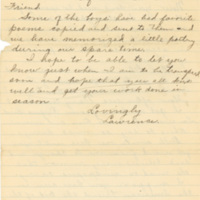 Friend.
Some of the boys have had favorite
poems copied and sent to them and
we have memorized a little poetry
during our spare time.
I hope to be able to let you
know just when I am to be
soon and hope that you all keep
well and get your work done in
season
Lovingly
Lawrence